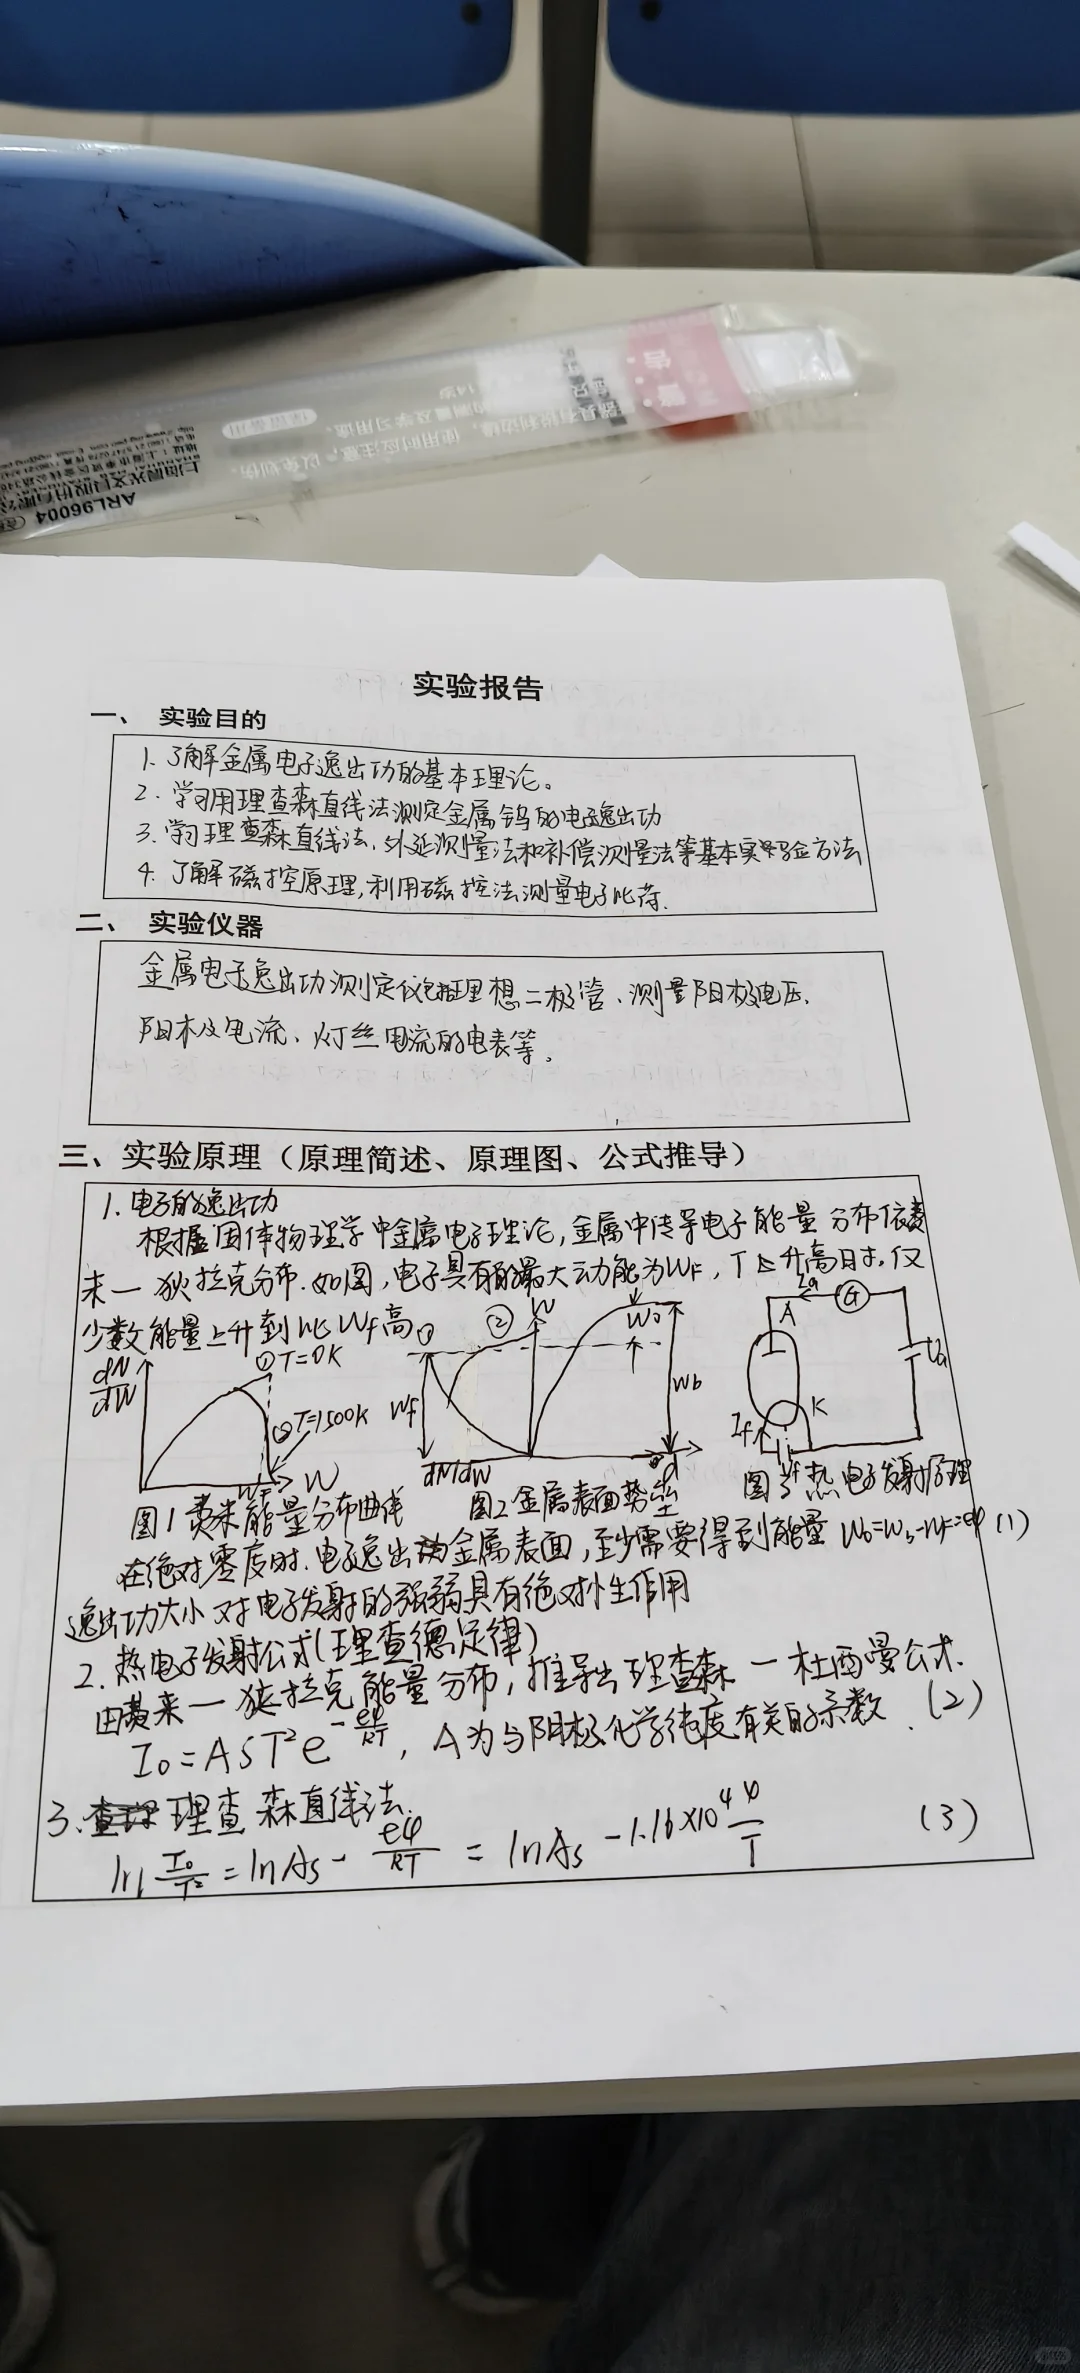 警告
ARL96004
上海晨光文具股份有限公
使用时应注意, 以免划伤。
的测量及学习用途。
实验报告
一、 实验目的
1. 了解金属电子逸出功的基本理论。
2. 学习用理查森直线法测定金属钨的电子逸出功
3. 学习理查森直线法、外延测量法和补偿测量法等基本实验方法
4. 了解磁控原理,利用磁控法测量电子比荷.
二、 实验仪器
金属电子逸出功测定仪包括理想二极管、测量阳极电压、
阳极电流、灯丝电流的电表等。
三、实验原理(原理简述、原理图、公式推导)
1. 电子的逸出功
根据固体物理学中金属电子理论,金属中传导电子能量分布依费
米一狄拉克分布. 如图,电子具有的最大动能为WF, T 升高时, 仅
少数能量上升到比Wf高
dN/dW ①T=0K ②T=1500K WF W
① ② W Wf W0 Wb dN/dW d
A Ia G Ua K If
图1 费米能量分布曲线 图2 金属表面势垒 图3 热电子发射原理
在绝对零度时. 电子逸出 金属表面,至少需要得到能量 W0=Wb-WF=eφ (1)
逸出功大小对电子发射的强弱具有绝对性作用
2. 热电子发射公式(理查德定律)
由费来一狄拉克能量分布,推导出理查森一杜西曼公式.
I0=AST²e^(-eφ/kT), A为与阴极化学纯度有关的系数. (2)
3. 理查森直线法.
ln I0/T² = lnAs - eφ/kT = lnAs - 1.16×10⁴ φ/T (3)